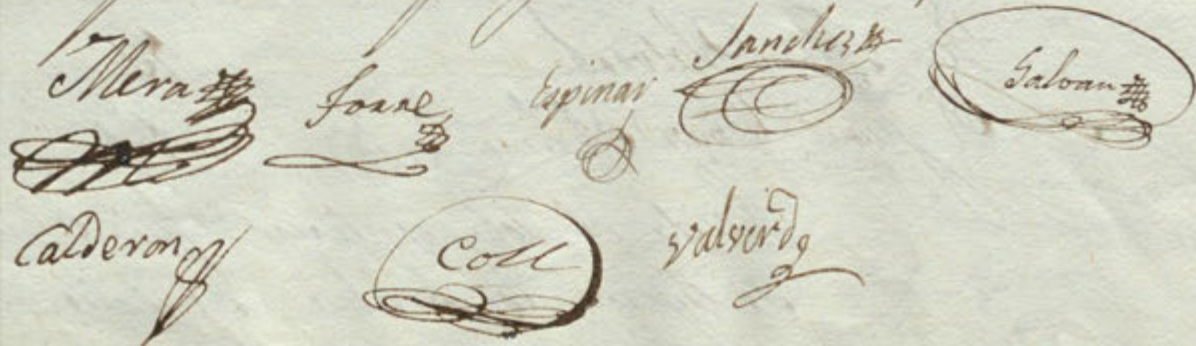 Mera Torre Espinar Sanchez Galvan
Calderon Coll Valverd